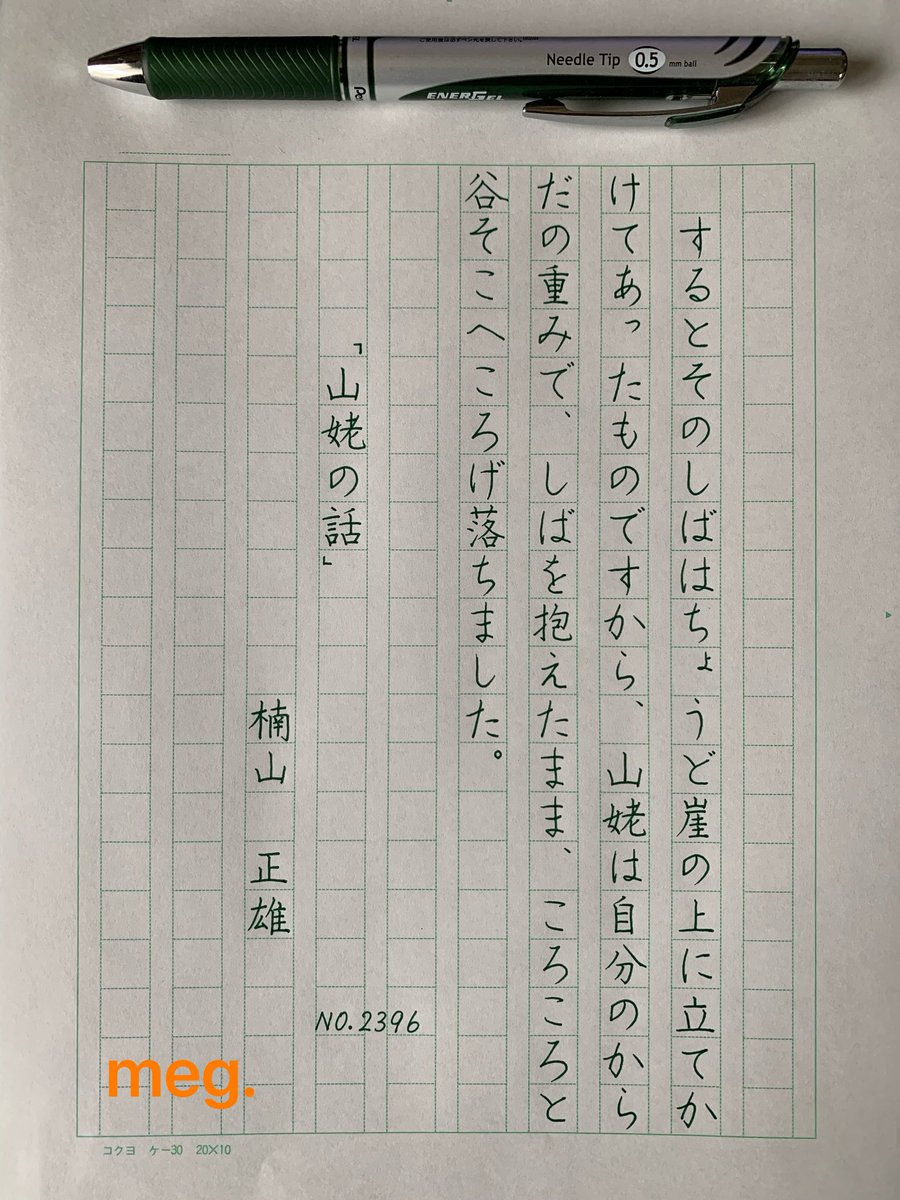 Needle Tip 0.5 mm ball
ENERGEL
するとそのしばはちょうど崖の上に立てか
けてあったものですから、山姥は自分のから
だの重みで、しばを抱えたまま、ころころと
谷そこへころげ落ちました。
「山姥の話」
楠山 正雄
NO.2396
meg.
コクヨ ケー30 20×10